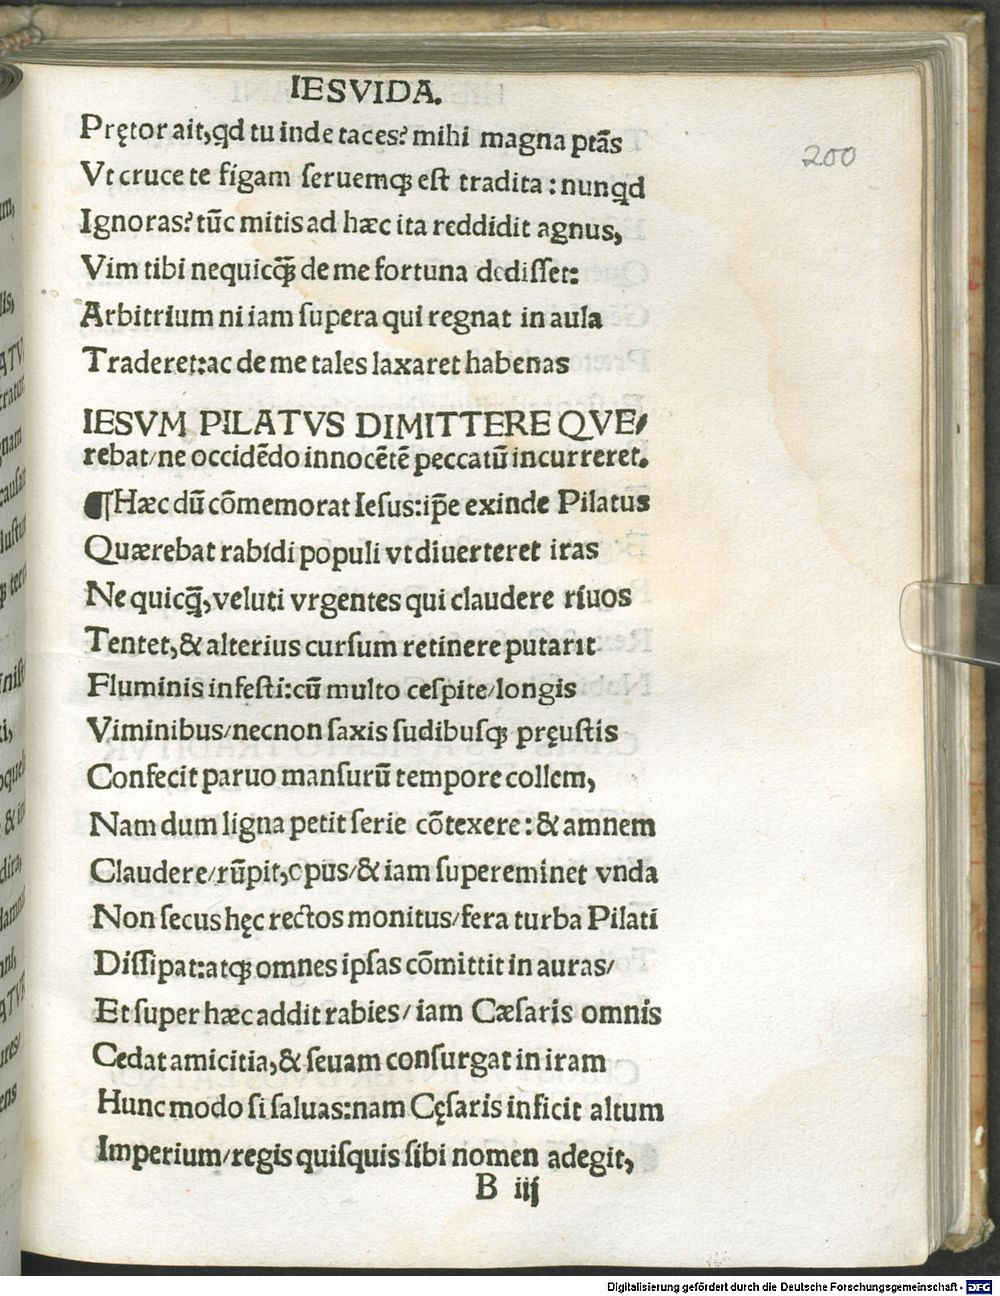 IESVIDA.
Prętor ait,qd tu inde taces? mihi magna ptãs
200
Vt cruce te figam ſeruemqꝫ eſt tradita : nunqd
Ignoras? tũc mitis ad hæc ita reddidit agnus,
Vim tibi nequicq̃ de me fortuna dediſſet:
Arbitrium ni iam ſupera qui regnat in aula
Traderet:ac de me tales laxaret habenas
IESVM PILATVS DIMITTERE QVE/
rebat/ne occidẽdo innocẽtẽ peccatũ incurreret.
¶Hæc dũ cõmemorat Ieſus:ip̃e exinde Pilatus
Quærebat rabidi populi vt diuerteret iras
Ne quicq̃,veluti vrgentes qui claudere riuos
Tentet,& alterius curſum retinere putarit
Fluminis infeſti:cũ multo ceſpite/longis
Viminibus/necnon ſaxis ſudibuſqꝫ pręuſtis
Confecit paruo manſurũ tempore collem,
Nam dum ligna petit ſerie cõtexere : & amnem
Claudere/rũpit,opus/& iam ſupereminet vnda
Non ſecus hęc rectos monitus/fera turba Pilati
Diſſipat:atqꝫ omnes ipſas cõmittit in auras/
Et ſuper hæc addit rabies/ iam Cæſaris omnis
Cedat amicitia,& ſeuam conſurgat in iram
Hunc modo ſi ſaluas:nam Cęſaris inficit altum
Imperium/regis quiſquis ſibi nomen adegit,
B iij
um,
lis,
ATV
tratur
nam
cauſam
iuſtur
qꝫ
& in
dira,
ATVR
ures/
ens
Digitalisierung gefördert durch die Deutsche Forschungsgemeinschaft - DFG